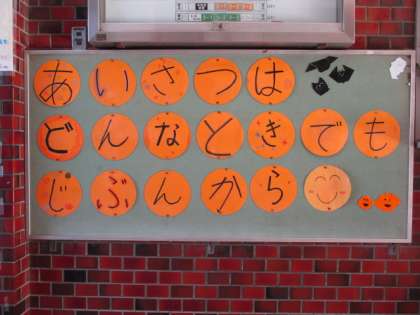 あいさつは
どんなときでも
じぶんから